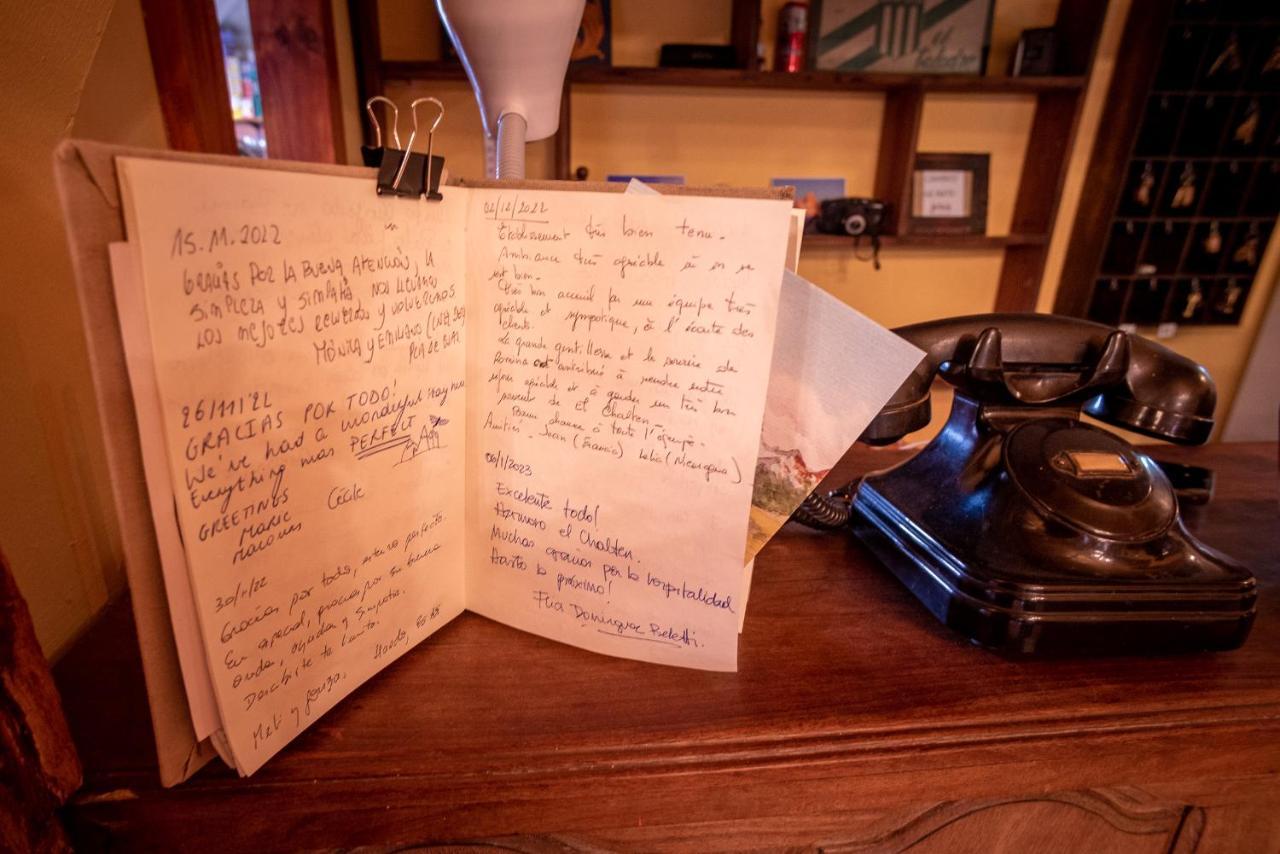 15.11.2022
GRACIAS POR LA BUENA ATENCIÓN, LA
SIMPLEZA Y SIMPATÍA, NOS LLEVAMOS
LOS MEJORES RECUERDOS Y VOLVEREMOS
MÓNICA Y EMILIANO
26/11/22
GRACIAS POR TODO!
We've had a wonderful stay here
Everything was PERFECT
GREETINGS
MARIE Cécile
30/11/22
Gracias por todo, estuvo perfecto.
En especial, gracias por su buena
onda, ayuda y simpatía.
02/12/2022
Etablissement très bien tenu.
Ambiance très agréable où on se
sent bien.
Très bon accueil par une équipe très
agréable et sympatique, à l'écoute des
clients.
La grande gentillesse et le sourire de
Romina ont contribué à rendre notre
séjour agréable et à garder un très bon
souvenir de el Chalten.
Bonne chance à toute l'équipe.
Amitiés. Jean (Francia) (Nicaragua)
06/1/2023
Excelente todo!
Hermoso el Chalten.
Muchas gracias por la hospitalidad
Hasta la próxima!